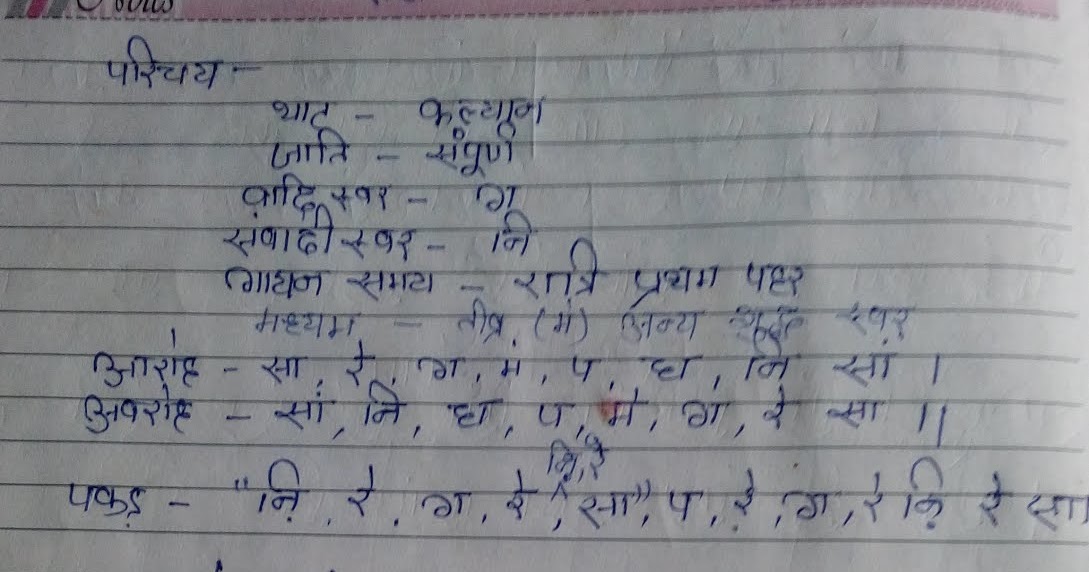 परिचय -
थाट - कल्याण
जाति - संपूर्ण
वादि स्वर - ग
सवादी स्वर - नि
गायन समय - रात्रि प्रथम पहर
मध्यम - तीव्र (मं) अन्य शुद्ध स्वर
आरोह - सा, रे, ग, म, प, ध, नि सां ।
अवरोह - सां, नि, ध, प, मं, ग, रे सा ॥
नि़, रे
पकड़ - "नि़, रे, ग, रे, सा", प, रे, ग, रे नि़ रे सा।